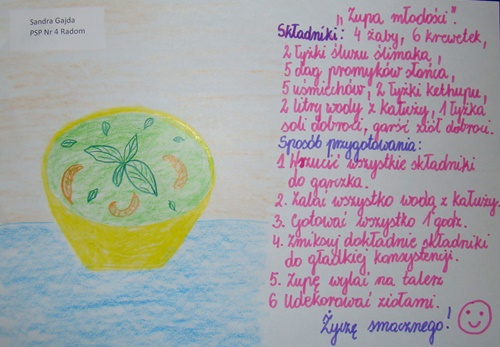 Sandra Gajda
PSP Nr 4 Radom
„Zupa młodości".
Składniki: 4 żaby, 6 krewetek,
2 łyżki śluzu ślimaka,
5 dag promyków słońca,
5 uśmiechów, 2 łyżki kethupu,
2 litry wody z kałuży, 1 łyżka
soli dobroci, garść ziół dobroci.
Sposób przygotowania:
1 Wrzucić wszystkie składniki
do garczka.
2. Zalać wszystko wodą z kałuży.
3. Gotować wszystko 1 godz.
4. Zmiksuj dokładnie składniki
do gładkiej konzystencji.
5. Zupę wylać na talerz
6 Udekorować ziołami.
Życzę smacznego!